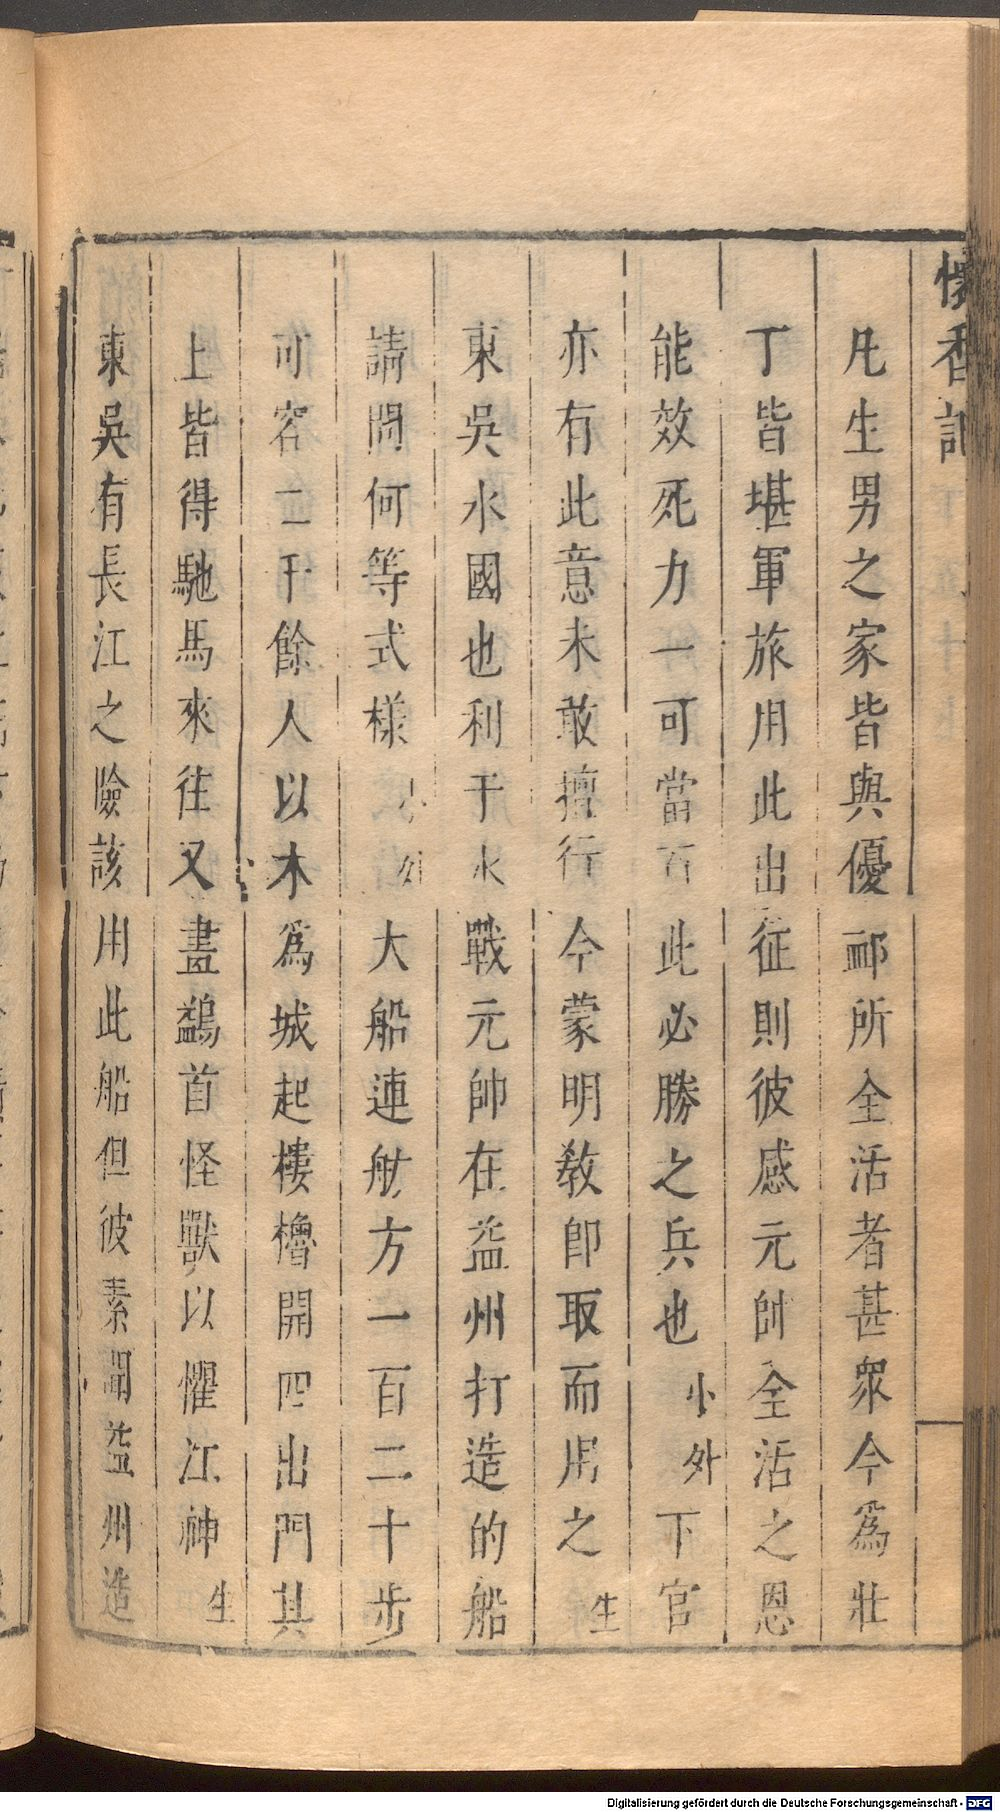 懷香記
凡生男之家皆與優䘏所全活者甚衆今爲壯
丁皆堪軍旅用此出征則彼感元帥全活之恩
能效死力一可當百此必勝之兵也小外下官
亦有此意未敢擅行今蒙明教卽取而用之生
東吳水國也利于水戰元帥在益州打造的船
請問何等式樣小外大船連舫方一百二十步
可容二千餘人以木爲城起樓櫓開四出門其
上皆得馳馬來往又畫鷁首怪獸以懼江神生
東吳有長江之險該用此船但彼素聞益州造
Digitalisierung gefördert durch die Deutsche Forschungsgemeinschaft - DFG